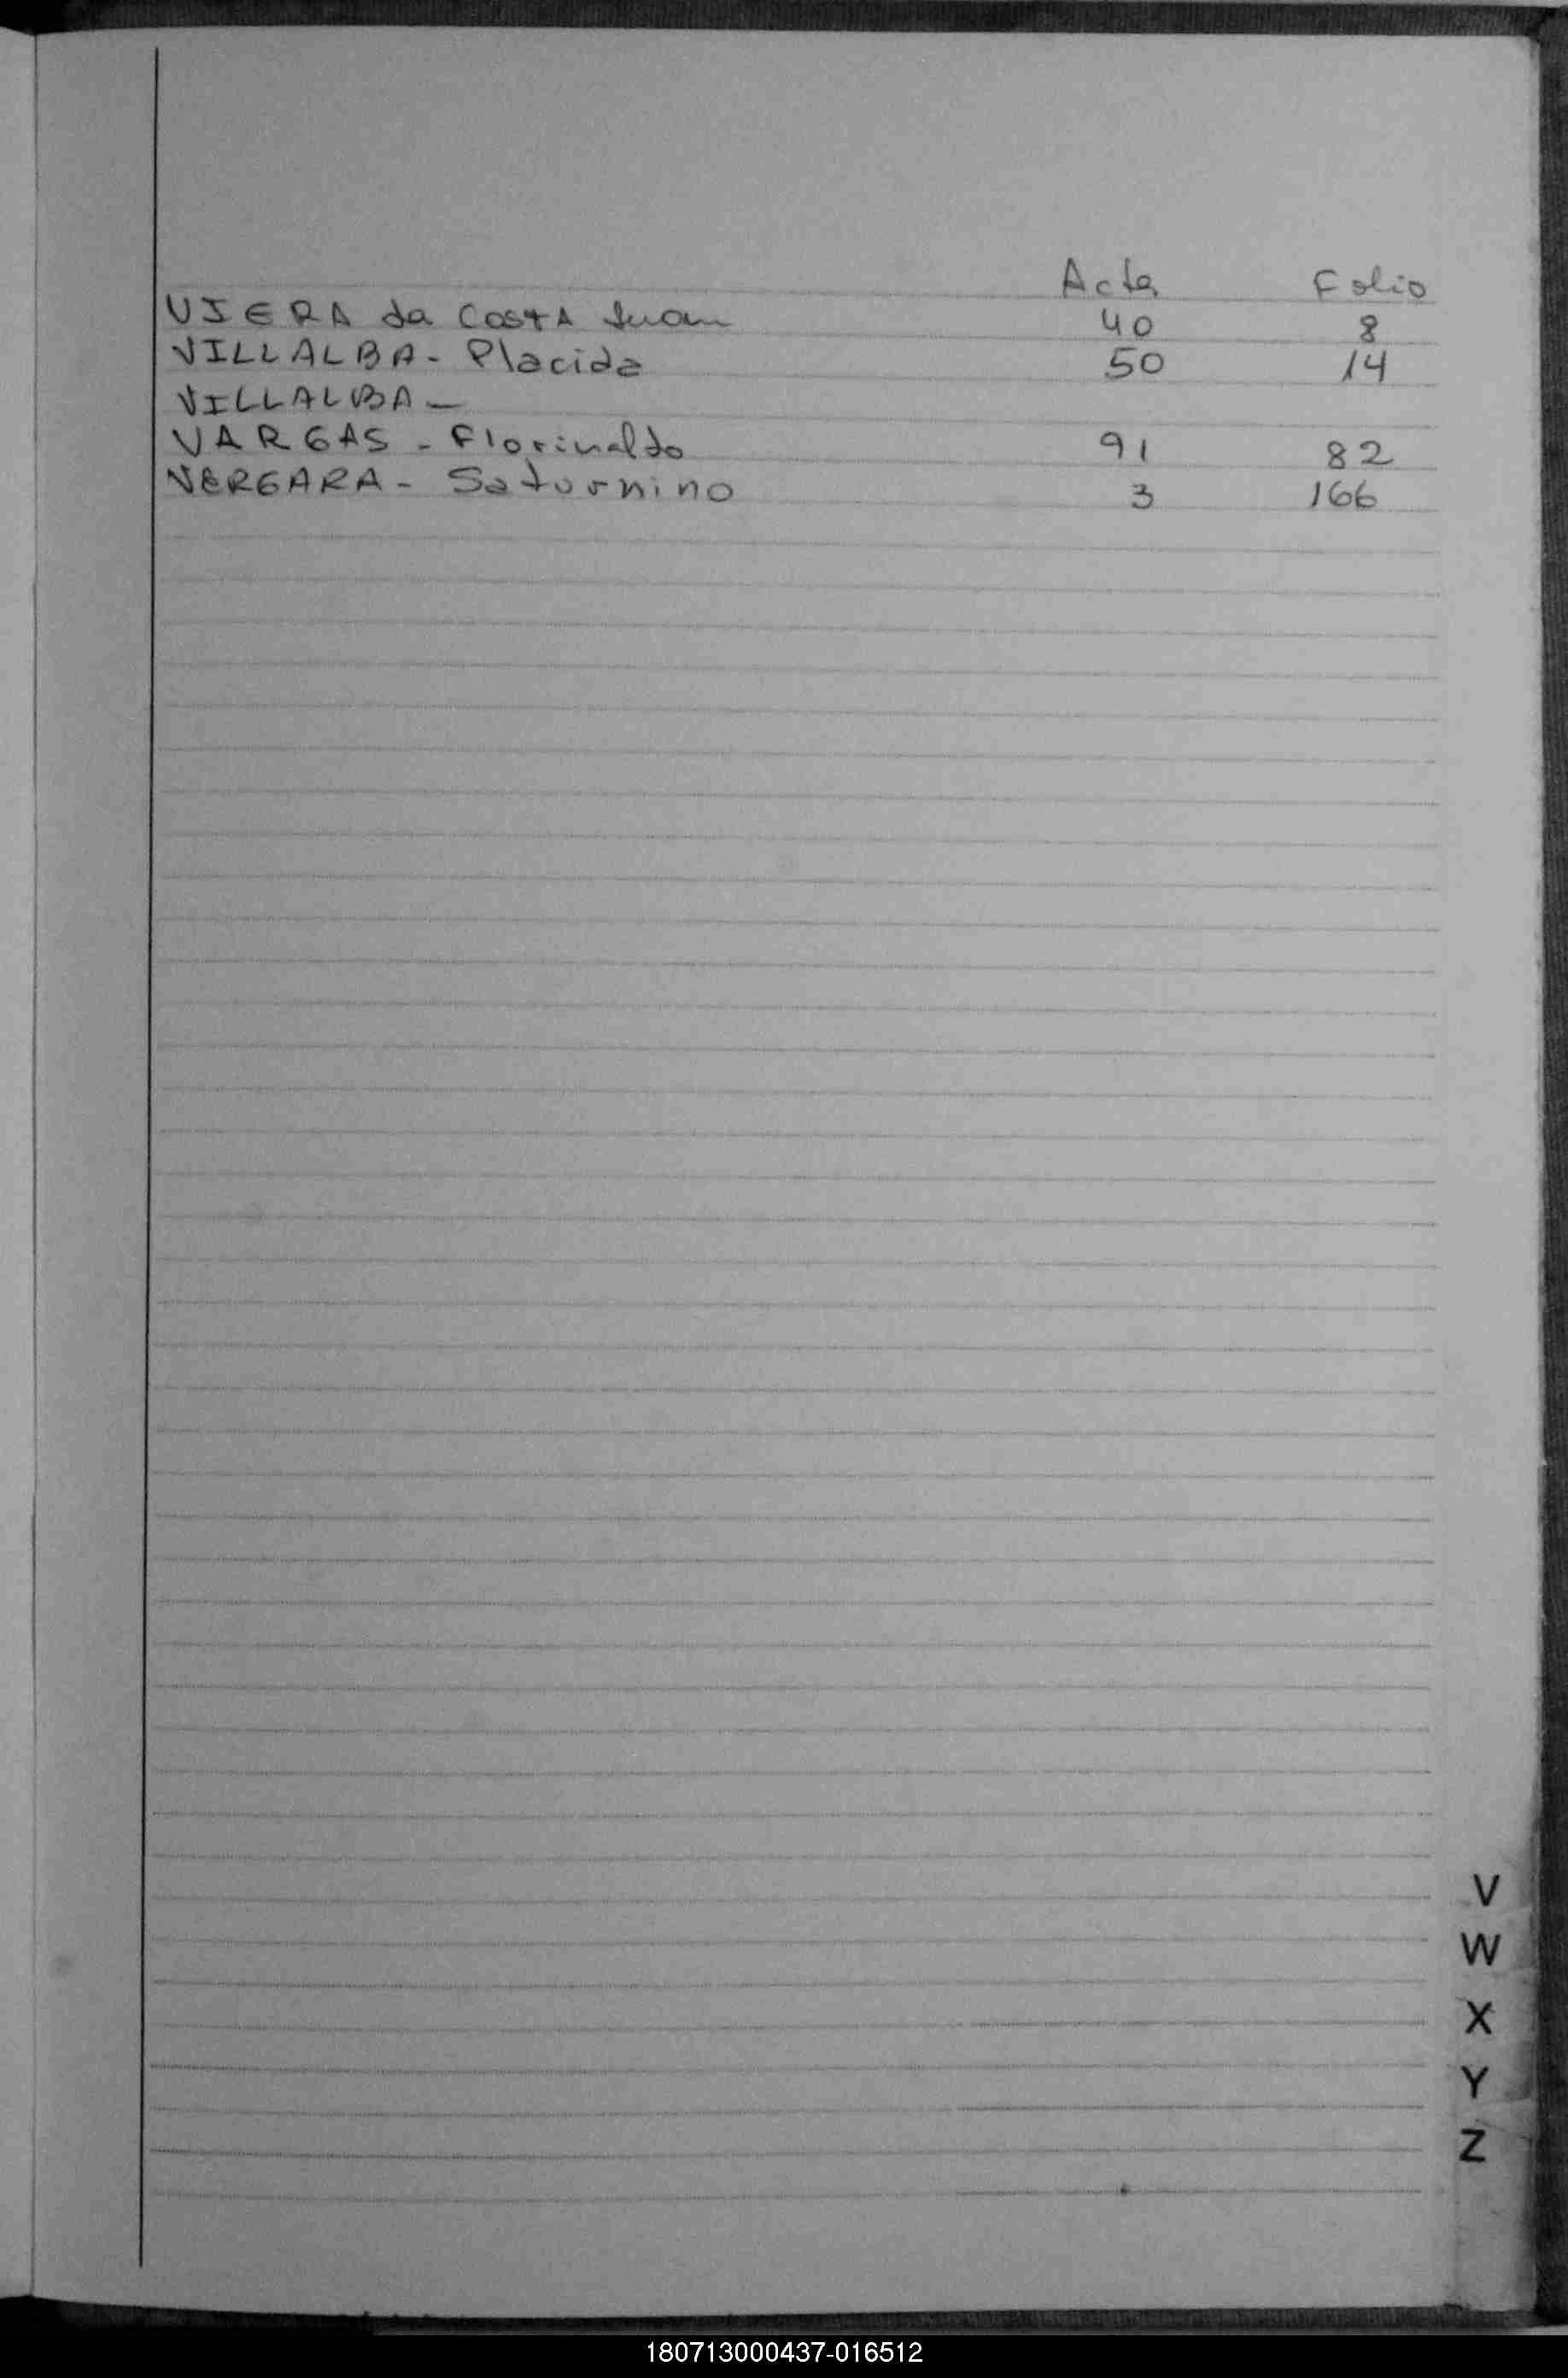 Acta Folio
VIERA da COSTA Juan 40 8
VILLALBA - Placida 50 14
VILLALBA -
VARGAS - Florinaldo 91 82
VERGARA - Saturnino 3 166
V
W
X
Y
Z
180713000437-016512